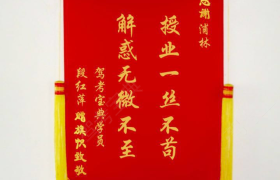 感谢 浦林
授业一丝不苟
解惑无微不至
驾考宝典学员
段红萍 赠旗致敬